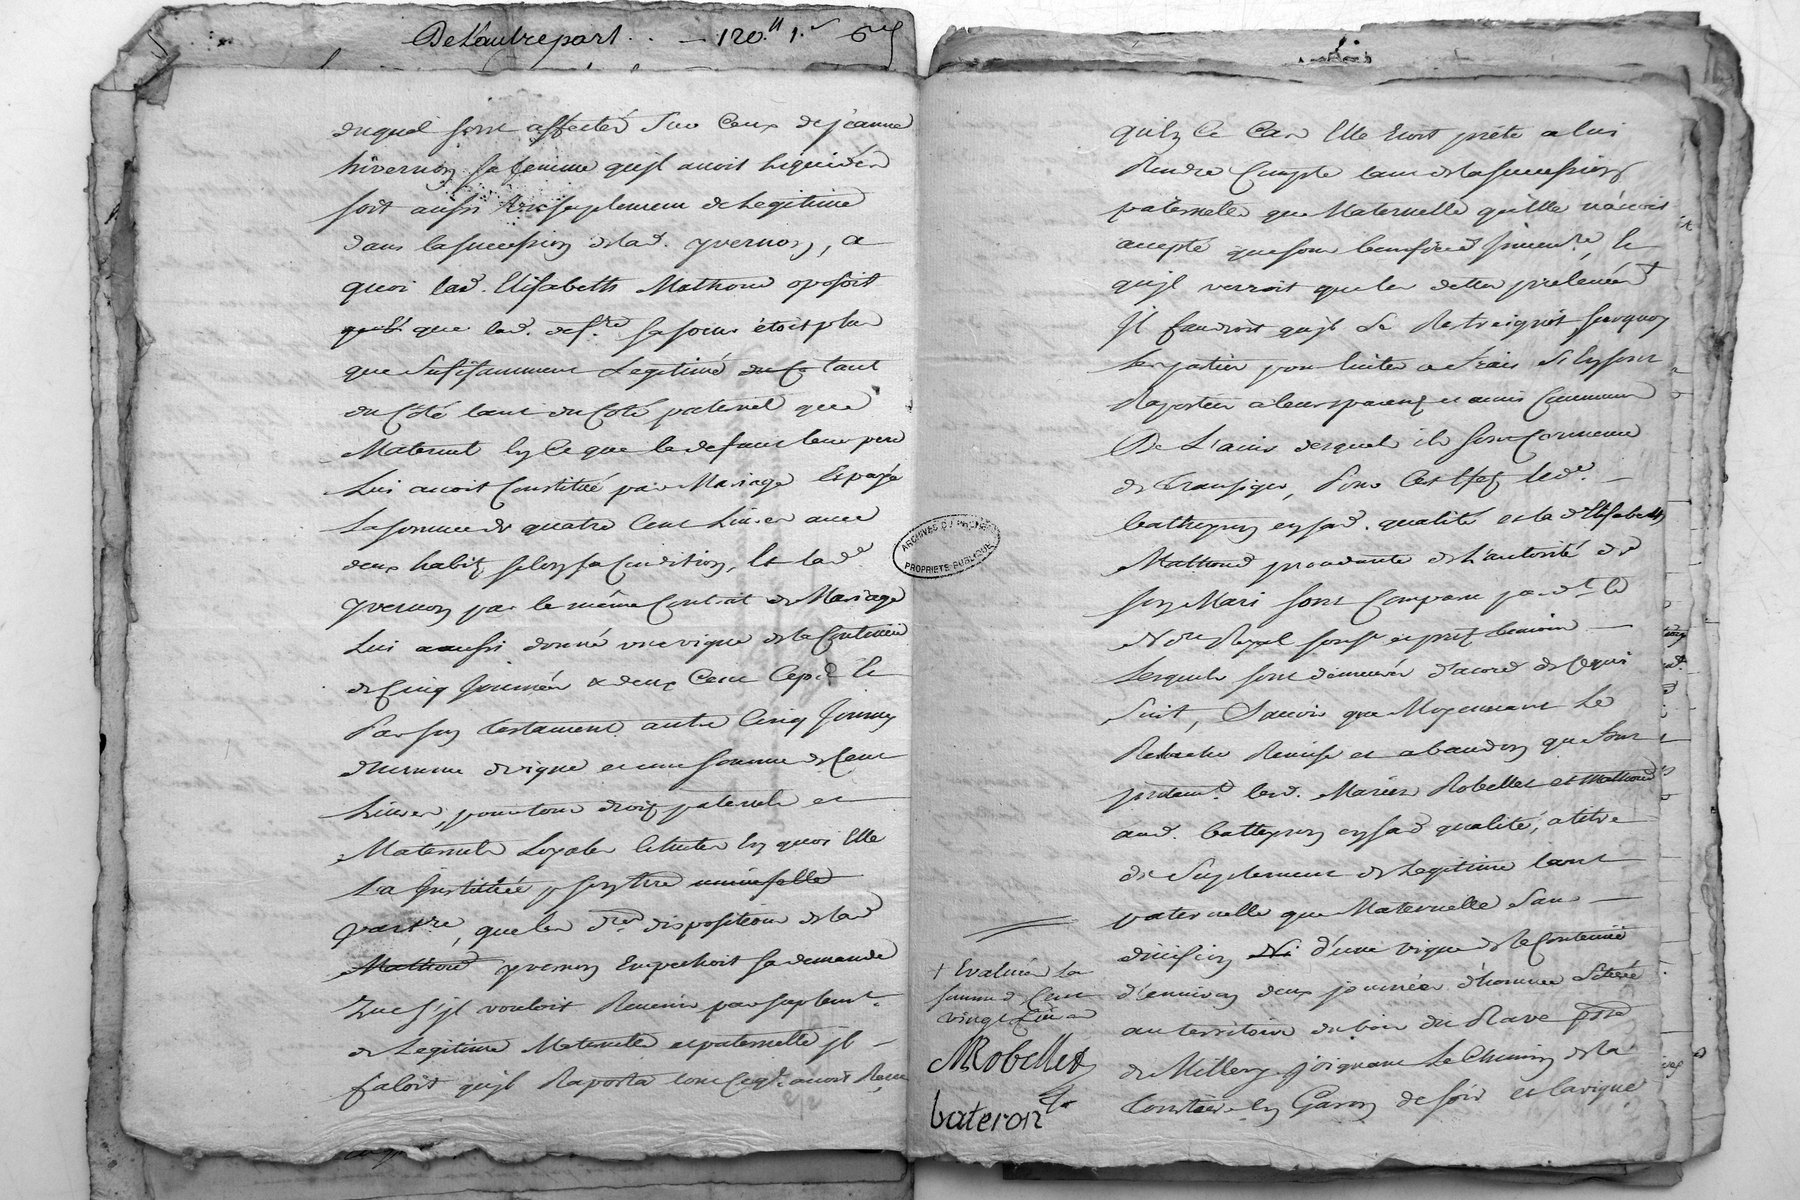 De l'autre part . . — 120.ʰ 1.ˢ 6 d
duquel sont affecté sur ceux de jeanne
hivernon sa femme qu'jl auoit liquidés
soit aussi suplement de Legitime
dans la succession de lad. yvernon, a
quoi lad. Elisabeth Mathoud oposoit
que lad. deff.te sa soeur étoit plus
que sufisamment Legitimé tant
du Côté tant du Coté paternel que
Maternel En Ce que le defaunt leur pere
Lui auoit Constitué par Mariage Et payé
La somme de quatre Cent Liures auec
deux habits selon sa Condition, Et la de
yvernon par le même Contrat de Mariage
Lui aaussi donné vne vigne de la Contenue
de Cinq journées & deux Cent Ceps & le
Par son testament autre Cinq journés
d'homme de vigne et une somme de Cent
Liures, pour tous droits paternels et
Maternels Loyales Echutes En quoi Elle
La jnstituée p son hre uniuselle
partre, que les dres dispositions de lad
Mathoud yvernon Empechoit sa demande
Que s'jl vouloit Reuenir par suplemt.
de Legitime Maternelle et paternelle jl —
faloit qu'jl Raporta tout Ce qu'. auoit Recu
qu'En Ce Cas Elle Etoit prete a lui
Rendre Compte tant de la succession
paternelle que Maternelle qu'Elle n'auoit
accepté que sous benefice d'jnuentre, Et
qu'jl verroit que les dettes preleuées
Jl faudroit qu'jl Se Restraignit, surquoy
les parties pour Euiter a frais S'En sont
Raportées a leurs parens et amis Communs
De L'auis desquels ils sont Conuenus
de transiger, Pour Cet Effet led.t —
batteyron en sad. qualité et la de Elisabeth
Mathoud procedante de L'autorité de
son Mari sont Comparu pard.t le
Nore Royal souss.e et presens temoins —
Lesquels sont demeurés d'acord de Ce qui
Suit, Sauoir que Moyennant Le
Relache Remise et abandon que font
pntemt. lesd. Mariés Robellet et Mathoud
aud. batteyron en sad qualité, a titre
de Suplement de Legitime tant
paternelle que Maternelle Sans —
diuision Ni d'une vigne de la Contenue
d'enuiron deux journées d'homme Située
au territoire du bois du Raue psse
de Millery joignant Le Chemin de la
tout a En Garon de soir et la vigne
+ Evaluée La
somme de Cent
vingt Liures
MRobellet
bateron
ARCHIVES DU RHONE
PROPRIETE PUBLIQUE